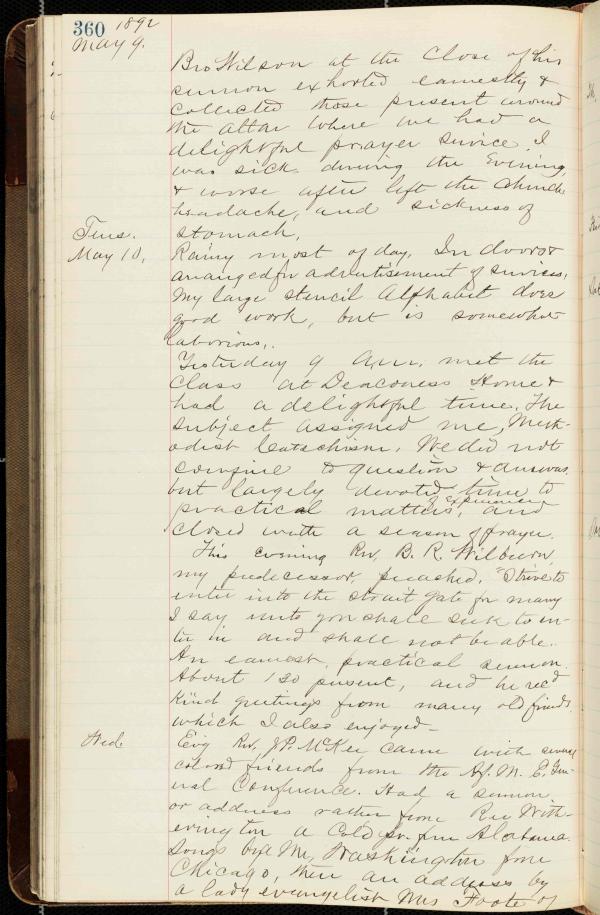 360 1892
May 9.
Bro Wilson at the close of his
sermon exhorted earnestly &
collected those present around
the altar where we had a
delightful prayer service. I
was sick during the Evening,
& worse after left the church
headache, and sickness of
stomach,
Tues.
May 10,
Rainy most of day. In doors &
arranged for advertisement of services,
My large stencil Alphabet does
good work, but is somewhat
laborious,.
Yesterday 9 a.m. met the
Class at Deaconess Home &
had a delightful time. The
subject assigned me, Meth-
odist Catechism. We did not
confine to question & answer,
but largely devoted time to
practical matters, of experience and
closed with a season of prayer.
This evening Rev. B. R. Wilburn,
my predecessor, preached. "Strive to
enter into the strait gate for many
I say unto you shall seek to en-
ter in and shall not be able.
An earnest, practical sermon.
About 120 present, and he rec'd
kind greetings from many old friends,
which I also enjoyed -
Wed.
Evg Rev. J.P. McKee came with several
colored friends from the Af. M. E. Gen-
eral Conference. Had a sermon
or address rather from Rev With-
erington a Col'd br. from Alabama.
Songs by Mr, Washington from
Chicago, then an address by
a lady evangelist Mrs Foote of